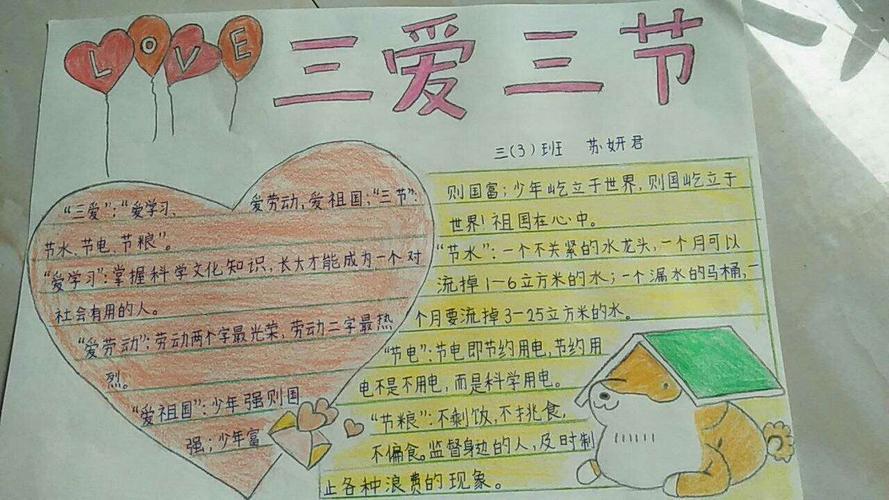 LOVE
三爱三节
三(3)班 苏妍君
“三爱”:“爱学习、爱劳动,爱祖国;“三节”:
节水、节电、节粮”。
“爱学习”:掌握科学文化知识,长大才能成为一个对
社会有用的人。
“爱劳动”:劳动两个字最光荣,劳动二字最热
烈。
“爱祖国”:少年强则国
强;少年富
则国富;少年屹立于世界,则国屹立于
世界!祖国在心中。
“节水”:一个不关紧的水龙头,一个月可以
流掉1—6立方米的水;一个漏水的马桶,一
个月要流掉3—25立方米的水。
“节电”:节电即节约用电,节约用
电不是不用电,而是科学用电。
“节粮”:不剩饭,不挑食,
不偏食。监督身边的人,及时制
止各种浪费的现象。